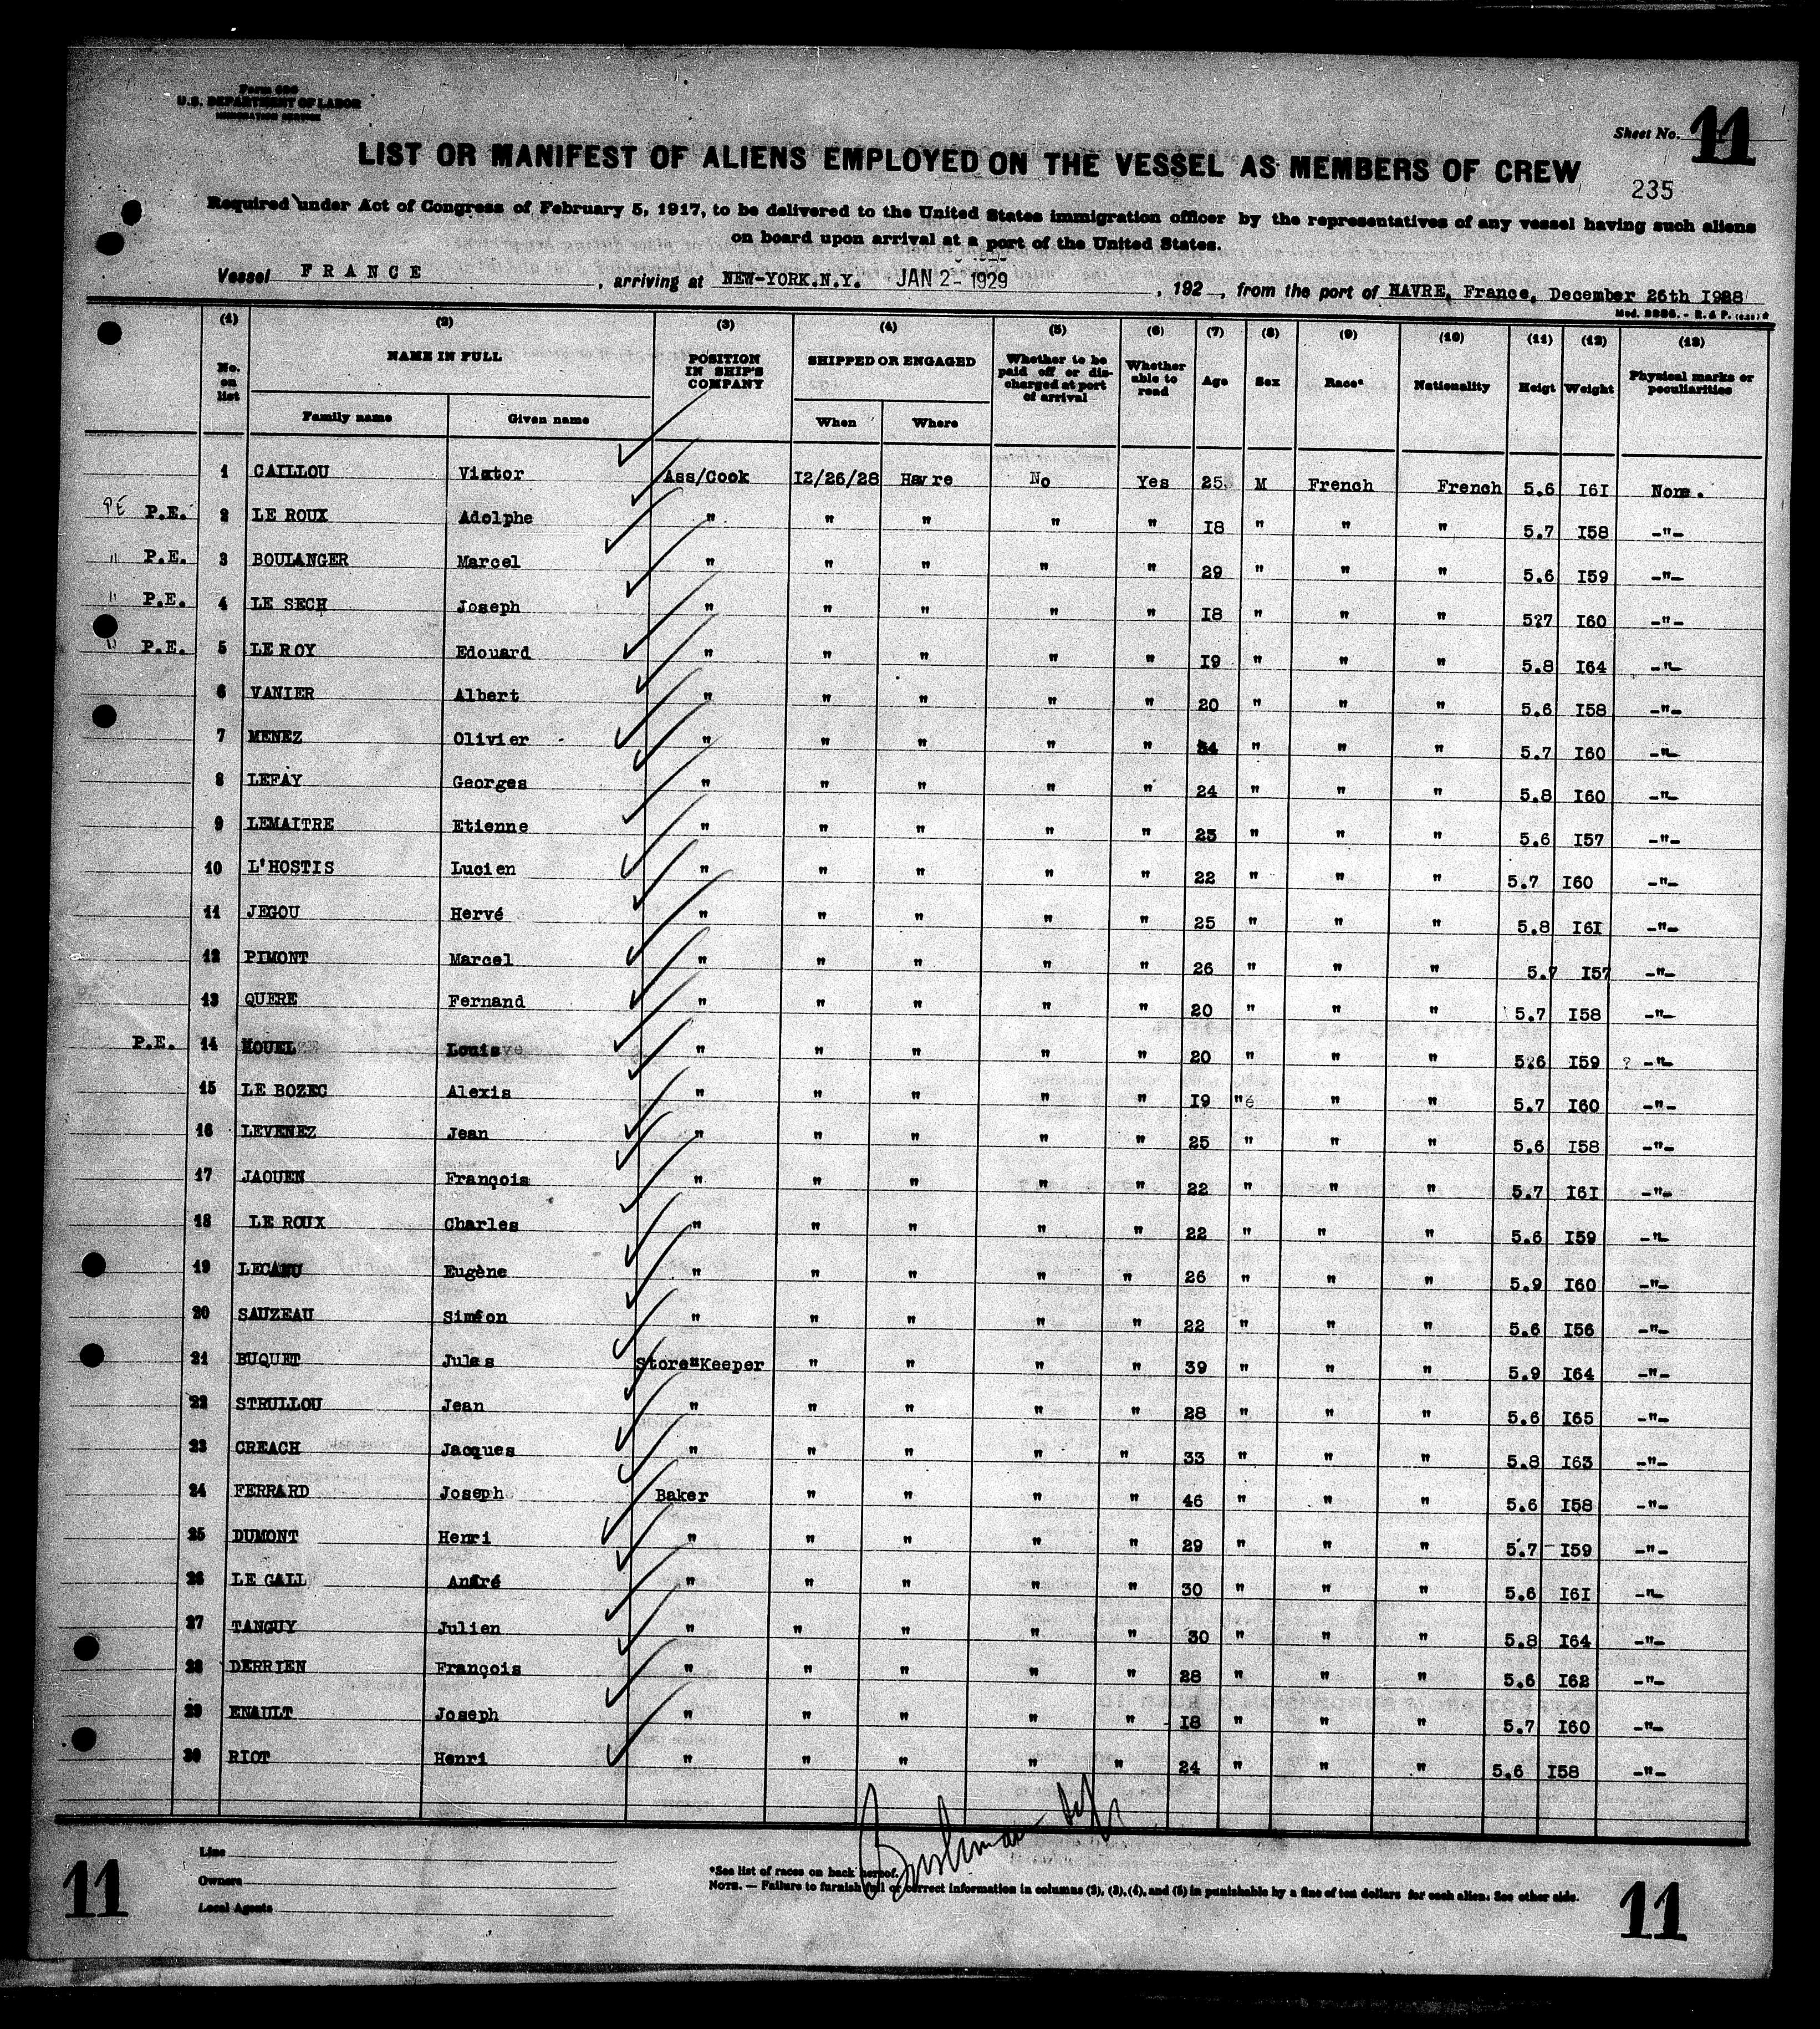 Form 680
U.S. DEPARTMENT OF LABOR
IMMIGRATION SERVICE
Sheet No. 11
LIST OR MANIFEST OF ALIENS EMPLOYED ON THE VESSEL AS MEMBERS OF CREW
235
Required under Act of Congress of February 5, 1917, to be delivered to the United States immigration officer by the representatives of any vessel having such aliens
on board upon arrival at a port of the United States.
Vessel FRANCE, arriving at NEW-YORK.N.Y. JAN 2-1929, 192 , from the port of HAVRE, France, December 26th 1928
(1) (2) (3) (4) (5) (6) (7) (8) (9) (10) (11) (12) (13)
No. on list NAME IN FULL Family name Given name POSITION IN SHIP'S COMPANY SHIPPED OR ENGAGED When Where Whether to be paid off or discharged at port of arrival Whether able to read Age Sex Race* Nationality Heigt Weight Physical marks or peculiarities
1 CAILLOU Viator Ass/Cook I2/26/28 Havre No Yes 25 M French French 5.6 I6I None.
PE P.E. 2 LE ROUX Adolphe " " " " " I8 " " " 5.7 I58 -"-
" P.E. 3 BOULANGER Marcel " " " " " 29 " " " 5.6 I59 -"-
" P.E. 4 LE SECH Joseph " " " " " I8 " " " 5?7 I60 -"-
" P.E. 5 LE ROY Edouard " " " " " I9 " " " 5.8 I64 -"-
6 VANIER Albert " " " " " 20 " " " 5.6 I58 -"-
7 MENEZ Olivier " " " " " 24 " " " 5.7 I60 -"-
8 LEFAY Georges " " " " " 24 " " " 5.8 I60 -"-
9 LEMAITRE Etienne " " " " " 23 " " " 5.6 I57 -"-
10 L'HOSTIS Lucien " " " " " 22 " " " 5.7 I60 -"-
11 JEGOU Hervé " " " " " 25 " " " 5.8 I6I -"-
12 PIMONT Marcel " " " " " 26 " " " 5.7 I57 -"-
13 QUERE Fernand " " " " " 20 " " " 5.7 I58 -"-
P.E. 14 MOUEL Louis " " " " " 20 " " " 5?6 I59 ? -"-
15 LE BOZEC Alexis " " " " " I9 "é " " 5.7 I60 -"-
16 LEVENEZ Jean " " " " " 25 " " " 5.6 I58 -"-
17 JAOUEN François " " " " " 22 " " " 5.7 I6I -"-
18 LE ROUX Charles " " " " " 22 " " " 5.6 I59 -"-
19 LECANU Eugène " " " " " 26 " " " 5.9 I60 -"-
20 SAUZEAU Siméon " " " " " 22 " " " 5.6 I56 -"-
21 BUQUET Jules Store"Keeper " " " " 39 " " " 5.9 I64 -"-
22 STRULLOU Jean " " " " " 28 " " " 5.6 I65 -"-
23 CREACH Jacques " " " " " 33 " " " 5.8 I63 -"-
24 FERRARD Joseph Baker " " " " 46 " " " 5.6 I58 -"-
25 DUMONT Henri " " " " " 29 " " " 5.7 I59 -"-
26 LE GALL André " " " " " 30 " " " 5.6 I6I -"-
27 TANGUY Julien " " " " " 30 " " " 5.8 I64 -"-
28 DERRIEN François " " " " " 28 " " " 5.6 I62 -"-
29 ENAULT Joseph " " " " " I8 " " " 5.7 I60 -"-
30 RIOT Henri " " " " " 24 " " " 5.6 I58 -"-
Line
Owners
Local Agents
*See list of races on back hereof.
NOTE. — Failure to furnish full or correct information in columns (2), (3), (4), and (5) in punishable by a fine of ten dollars for each alien. See other side.
11 11